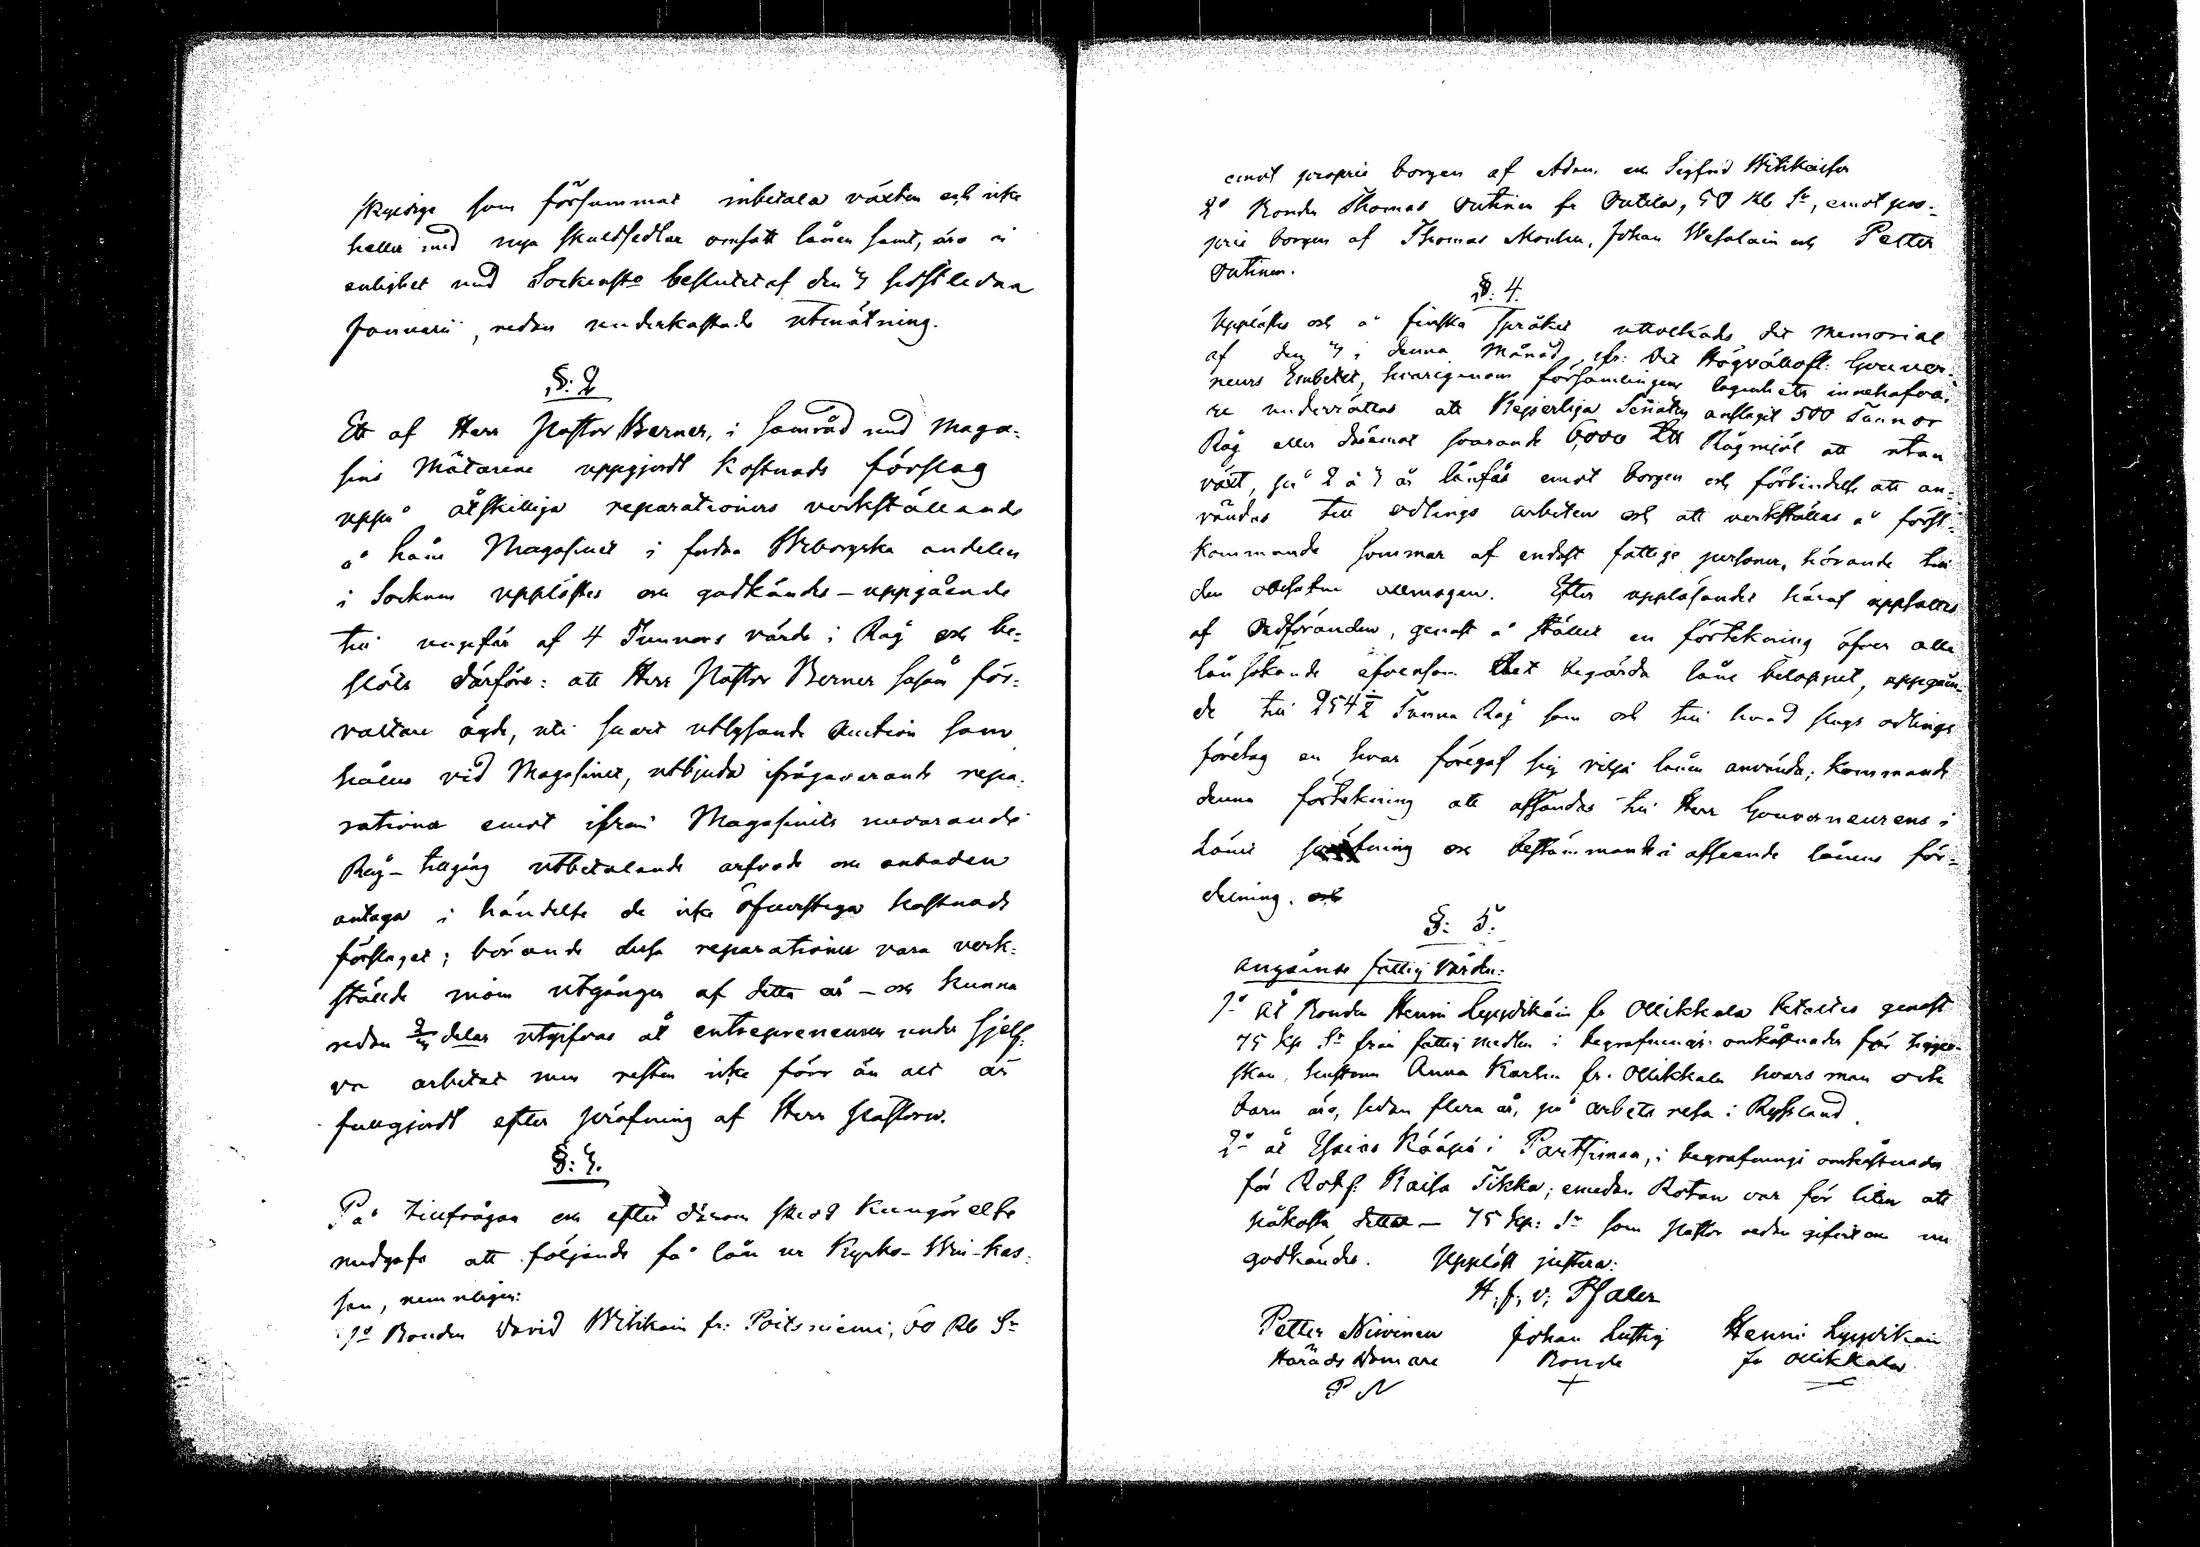 skyldige som försummat inbetala växten och icke
heller med nya skuldsedlar omsatt lånen samt, äro i
enlighet med Sockenst:o beslutet af den 3 sistledna
Januarii, redan underkastade utmätning.
§: 2
Ett af Herr Pastor Berner, i samråd med Maga-
sins Mätarene uppgjordt kostnads förslag
uppå åtskilliga reparationers verkställande
å Låne Magasinet i fordna Wiborgska andelen
i Socknen upplästes och godkändes – uppgående
till ungefär af 4 Tunnors värde i Råg och be-
slöts därföre: att Herr Pastor Berner såsom för-
valtare ägde, uti snart utlysande Auction som
hålles vid Magasinet, utbjuda ifrågavarande repa-
rationer emot ifrån Magasinets nuvarande
Råg-tillgång utbetalande arfvode och anbuden
antaga i händelse de icke öfverstiga kostnads
förslaget; börande dessa reparationer vara verk-
stälde inom utgången af detta år – och kunna
redan 2/3 delar utgifvas åt entrepreneuren under sjelf-
va arbetet men resten icke förr än allt är
fullgjordt efter pröfning af Herr Pastorn.
§: 3.
På tillfrågan och efter därom skedd Kungörelse
medgafs att följande få lån ur Kyrko-Win-Kas-
san, nemnligen:
1:o Bonden David Wihkain fr: Poitsniemi, 50 Rb Sr
emot proprie borgen af Adam och Sigfrid Wihkaisen
2:o Bonden Thomas Outinen fr Outila, 50 Rb Sr, emot pro-
prie borgen af Thomas Monhn, Johan Wesalain och Petter
Outinen.
§: 4.
Upplästes och å finska språket uttolkades det Memorial
af den 3 i denna Månad, ifr: Det Högvällofl: Gouver-
neurs Embetet, hvarigenom församlingens lägenhets innehafva-
re underrättas att Kejserliga Senaten anslagit 500 Tunnor
Råg eller däremot svarande 6,000 L℔ Rågmjöl att utan
växt, på 2 à 3 år lånfås emot borgen och förbindelse att an-
vändas till odlings arbeten och att verkställas å först-
kommande sommar af endast fattige personer, hörande till
den obesutne allmogen. Efter uppläsandet häraf upptalltes
af Ordföranden, genast å stället en förtekning öfver alla
lånsökande äfvensom det begärda låne beloppet, uppgåen-
de till 254½ Tunna Råg som och till hvad slags odlings
företag en hvar föregaf sig vilja lånen använda; kommande
denna förtekning att afsändas till Herr Gouverneurens i
Länet pröfning och bestämmande i afseende lånens för-
delning. och
§: 5.
Angående fattig vården:
1:o Åt Bonden Henric Lyydikäin fr Ollikkala betaltes genast
75 kp Sr från fattig medlen i begrafnings omkostnader för tigger-
skan, hustrun Anna Karhu fr. Ollikkala hvars man och
barn äro, sedan flera år, på arbets resa i Ryssland.
2:o åt Esaias Kääpä i Partsimaa, i begrafnings omkostnader
för Roth: Kaisa Tikka; emedan Rotan var för liten att
påkosta detta – 75 kp: Sr som Pastor redan gifvit och nu
godkändes. Uppläst justera:
H. f. v. Pfaler
Petter Nivinen Johan Luttig Henric Lyydikäin
Härads Domare Bonde fr Ollikkala
P N +